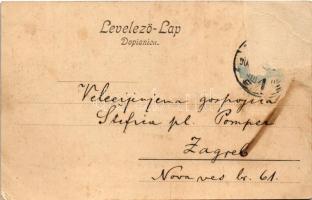 Levelező-Lap
Dopisnica.
Velecijenjena gospojica
Štefica pl. Pompер
Zagreb
Nova ves br. 61.